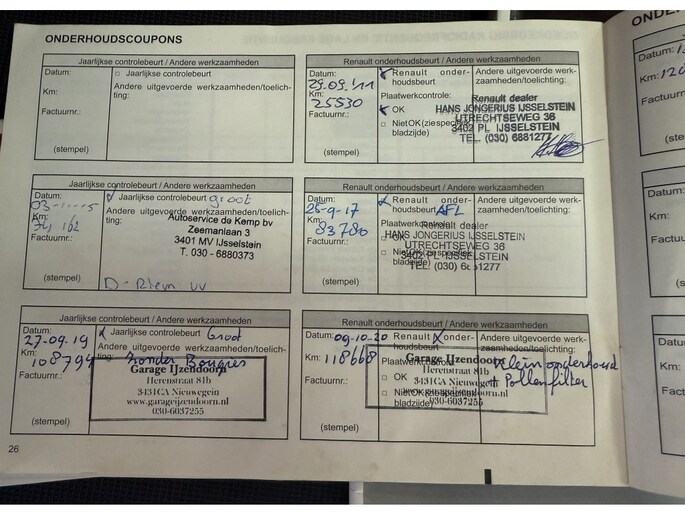 ONDERHOUDSCOUPONS
Jaarlijkse controlebeurt / Andere werkzaamheden
Datum:
□ Jaarlijkse controlebeurt
Km:
Andere uitgevoerde werkzaamheden/toelich-
ting:
Factuurnr.:
(stempel)
Renault onderhoudsbeurt / Andere werkzaamheden
Datum:
29.09.'11
Km:
25530
Factuurnr.:
(stempel)
Renault onder-
houdsbeurt
Plaatwerkcontrole:
OK
□ NietOK(ziespecifieke
bladzijde)
Andere uitgevoerde werk-
zaamheden/toelichting:
Renault dealer
HANS JONGERIUS IJSSELSTEIN
UTRECHTSEWEG 36
3402 PL IJSSELSTEIN
TEL. (030) 6881277
Jaarlijkse controlebeurt / Andere werkzaamheden
Datum:
Km:
Factuurnr.:
(stempel)
Jaarlijkse controlebeurt groot
Andere uitgevoerde werkzaamheden/toelich-
ting:
Autoservice de Kemp bv
Zeemanlaan 3
3401 MV IJsselstein
T. 030 - 6880373
Renault onderhoudsbeurt / Andere werkzaamheden
Datum:
Km:
83780
Factuurnr.:
(stempel)
Renault onder-
houdsbeurt AFL
Plaatwerkcontrole:
□ OK
□ NietOK(ziespecifieke
bladzijde)
Andere uitgevoerde werk-
zaamheden/toelichting:
Renault dealer
HANS JONGERIUS IJSSELSTEIN
UTRECHTSEWEG 36
3402 PL IJSSELSTEIN
TEL. (030) 6881277
Jaarlijkse controlebeurt / Andere werkzaamheden
Datum:
27-09-19
Km:
108794
Factuurnr.:
(stempel)
Jaarlijkse controlebeurt Groot
Andere uitgevoerde werkzaamheden/toelich-
ting: zonder Bougies
Garage IJzendoorn
Herenstraat 81b
3431CA Nieuwegein
www.garageijzendoorn.nl
030-6037255
Renault onderhoudsbeurt / Andere werkzaamheden
Datum:
09-10-20
Km:
118668
Factuurnr.:
(stempel)
Renault onder-
houdsbeurt
□ OK
bladzijde)
Andere uitgevoerde werk-
zaamheden/toelichting:
klein onderhoud
+ Pollenfilter
Garage IJzendoorn
Herenstraat 81b
3431CA Nieuwegein
www.garageijzendoorn.nl
030-6037255
26
Datum:
Km:
Factuurnr.
Datum:
Km:
Factuurnr.
Datum:
Km:
Factuurnr.